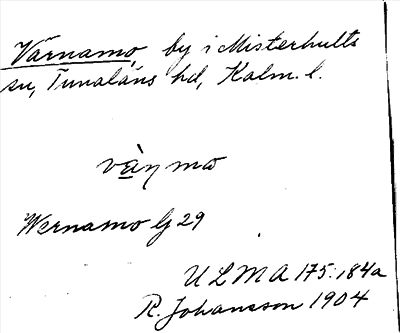 Värnamo, by i Misterhults
sn, Tunaläns hd, Kalm. l.
vä̀ɳmo
Wernamo lj 29
ULMA 175:184a
R. Johansson 1904